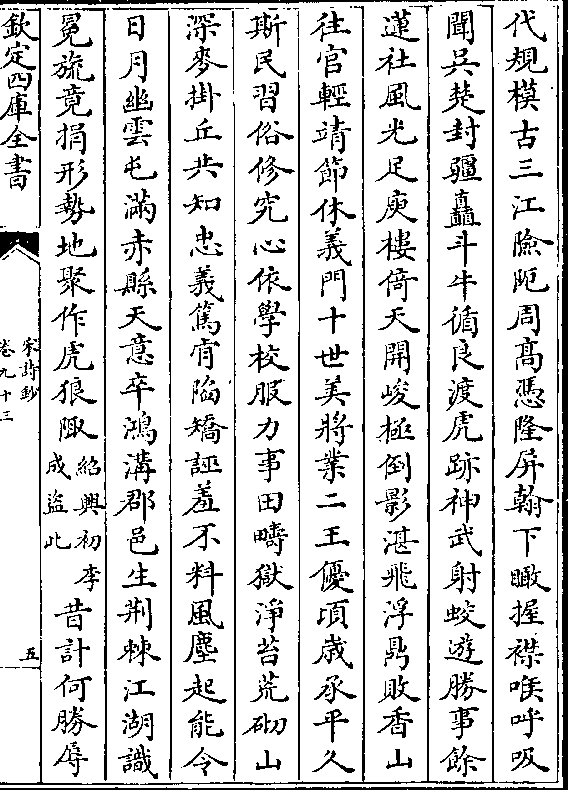 代規模古三江險阨周髙憑隆屏翰下瞰握襟喉呼吸
聞兵楚封疆矗斗牛循良渡虎跡神武射蛟遊勝事餘
蓮社風光足庾樓倚天開峻極倒影湛飛浮鼎敗香山
往官輕靖節休義門十世美將業二王優頃歳承平久
斯民習俗修究心依學校服力事田疇獄淨苔荒砌山
深麥掛丘共知忠義篤肎陷矯誣羞不料風塵起能令
日月幽雲屯滿赤縣天意卒鴻溝郡邑生荆棘江湖識
冕旒竟捐形勢地聚作虎狼陬
紹興初李
成盜此
昔計何勝辱
欽定四庫全書
宋詩鈔
卷九十三
五